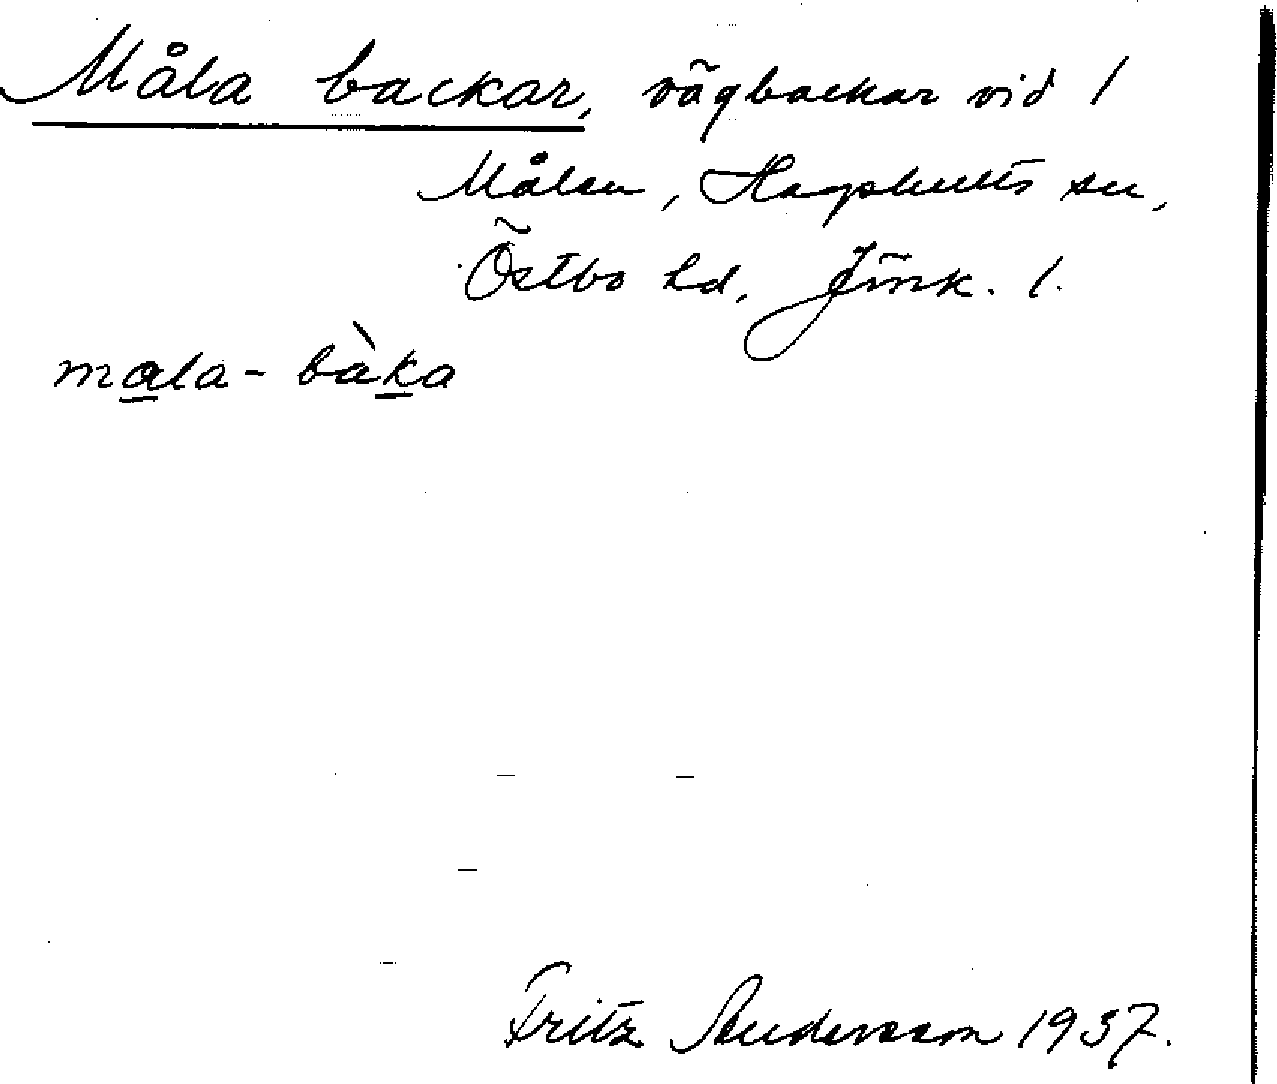 Måla backar, vägbackar vid /
Målen, Hagshults sn,
Östbo hd, Jönk. l.
mala - bàka
Fritz Andersson 1937.